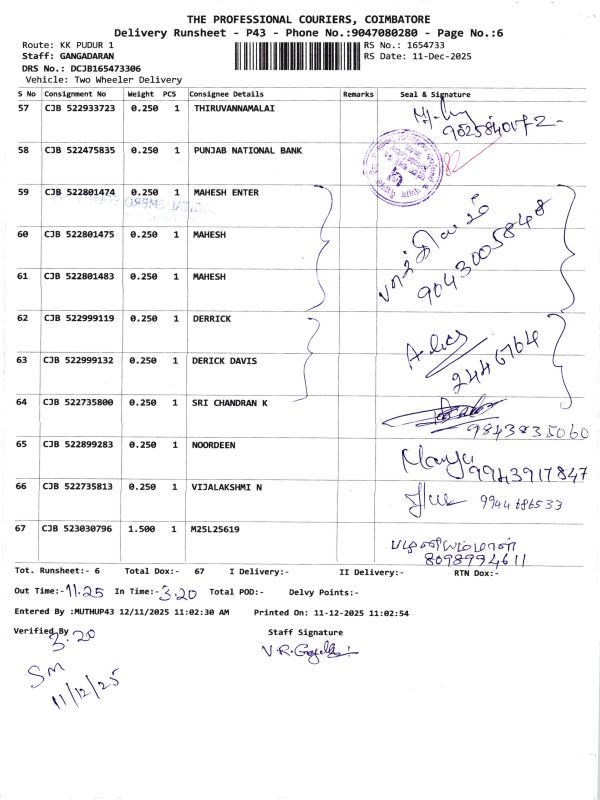 THE PROFESSIONAL COURIERS, COIMBATORE
Delivery Runsheet - P43 - Phone No.:9047080280 - Page No.:6
Route: KK PUDUR 1 RS No.: 1654733
Staff: GANGADARAN RS Date: 11-Dec-2025
DRS No.: DCJB165473306
Vehicle: Two Wheeler Delivery
S No Consignment No Weight PCS Consignee Details Remarks Seal & Signature
57 CJB 522933723 0.250 1 THIRUVANNAMALAI
58 CJB 522475835 0.250 1 PUNJAB NATIONAL BANK
59 CJB 522801474 0.250 1 MAHESH ENTER
60 CJB 522801475 0.250 1 MAHESH
9043005848
61 CJB 522801483 0.250 1 MAHESH
62 CJB 522999119 0.250 1 DERRICK
63 CJB 522999132 0.250 1 DERICK DAVIS
2446764
64 CJB 522735800 0.250 1 SRI CHANDRAN K
9843835060
65 CJB 522899283 0.250 1 NOORDEEN
Manju 9943917847
66 CJB 522735813 0.250 1 VIJALAKSHMI N
9944686533
67 CJB 523030796 1.500 1 M25L25619
பழனியம்மாள்
8098994611
Tot. Runsheet:- 6 Total Dox:- 67 I Delivery:- II Delivery:- RTN Dox:-
Out Time:- 11.25 In Time:- 3.20 Total POD:- Delvy Points:-
Entered By :MUTHUP43 12/11/2025 11:02:30 AM Printed On: 11-12-2025 11:02:54
Verified By Staff Signature
3.20
SM
11/12/25